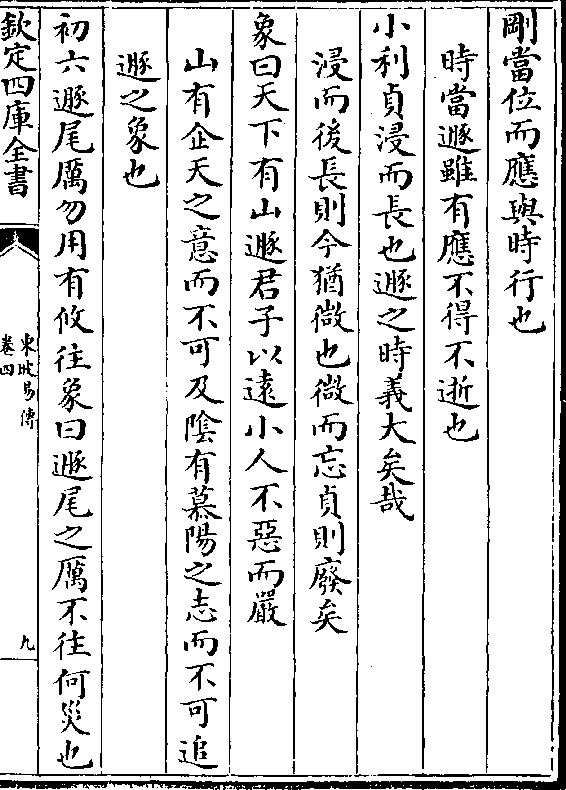 剛當位而應與時行也
時當遯雖有應不得不逝也
小利貞浸而長也遯之時義大矣哉
浸而後長則今猶微也微而忘貞則廢矣
象曰天下有山遯君子以遠小人不惡而嚴
山有企天之意而不可及陰有慕陽之志而不可追
遯之象也
初六遯尾厲勿用有攸往象曰遯尾之厲不往何災也
欽定四庫全書
東坡易傳
卷四
九